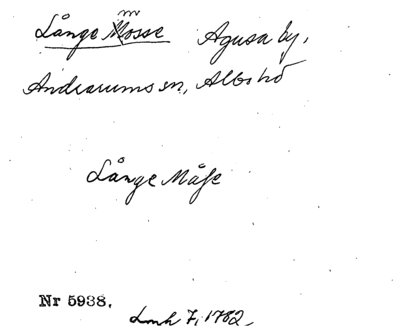 Långe Mosse Agusa by,
Andrarums sn, Albo hd
Långe Måsse
Nr 5938.
Lmh 7, 1782